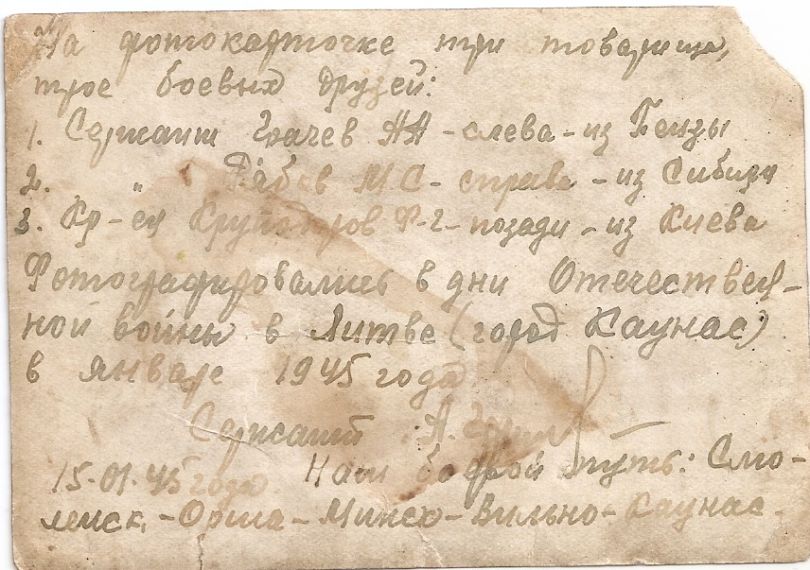 На фотокарточке три товарища,
трое боевых друзей:
1. Сержант Грачев АН - слева - из Пензы
2. " МС - справа - из Сибири
3. Кр-ец Ф-Г - позади - из Киева
Фотографировались в дни Отечествен-
ной войны в Литве (город Каунас)
в январе 1945 года
Сержант А.
15.01.45 года Наш боевой путь: Смо-
ленск - Орша - Минск - Вильно - Каунас.